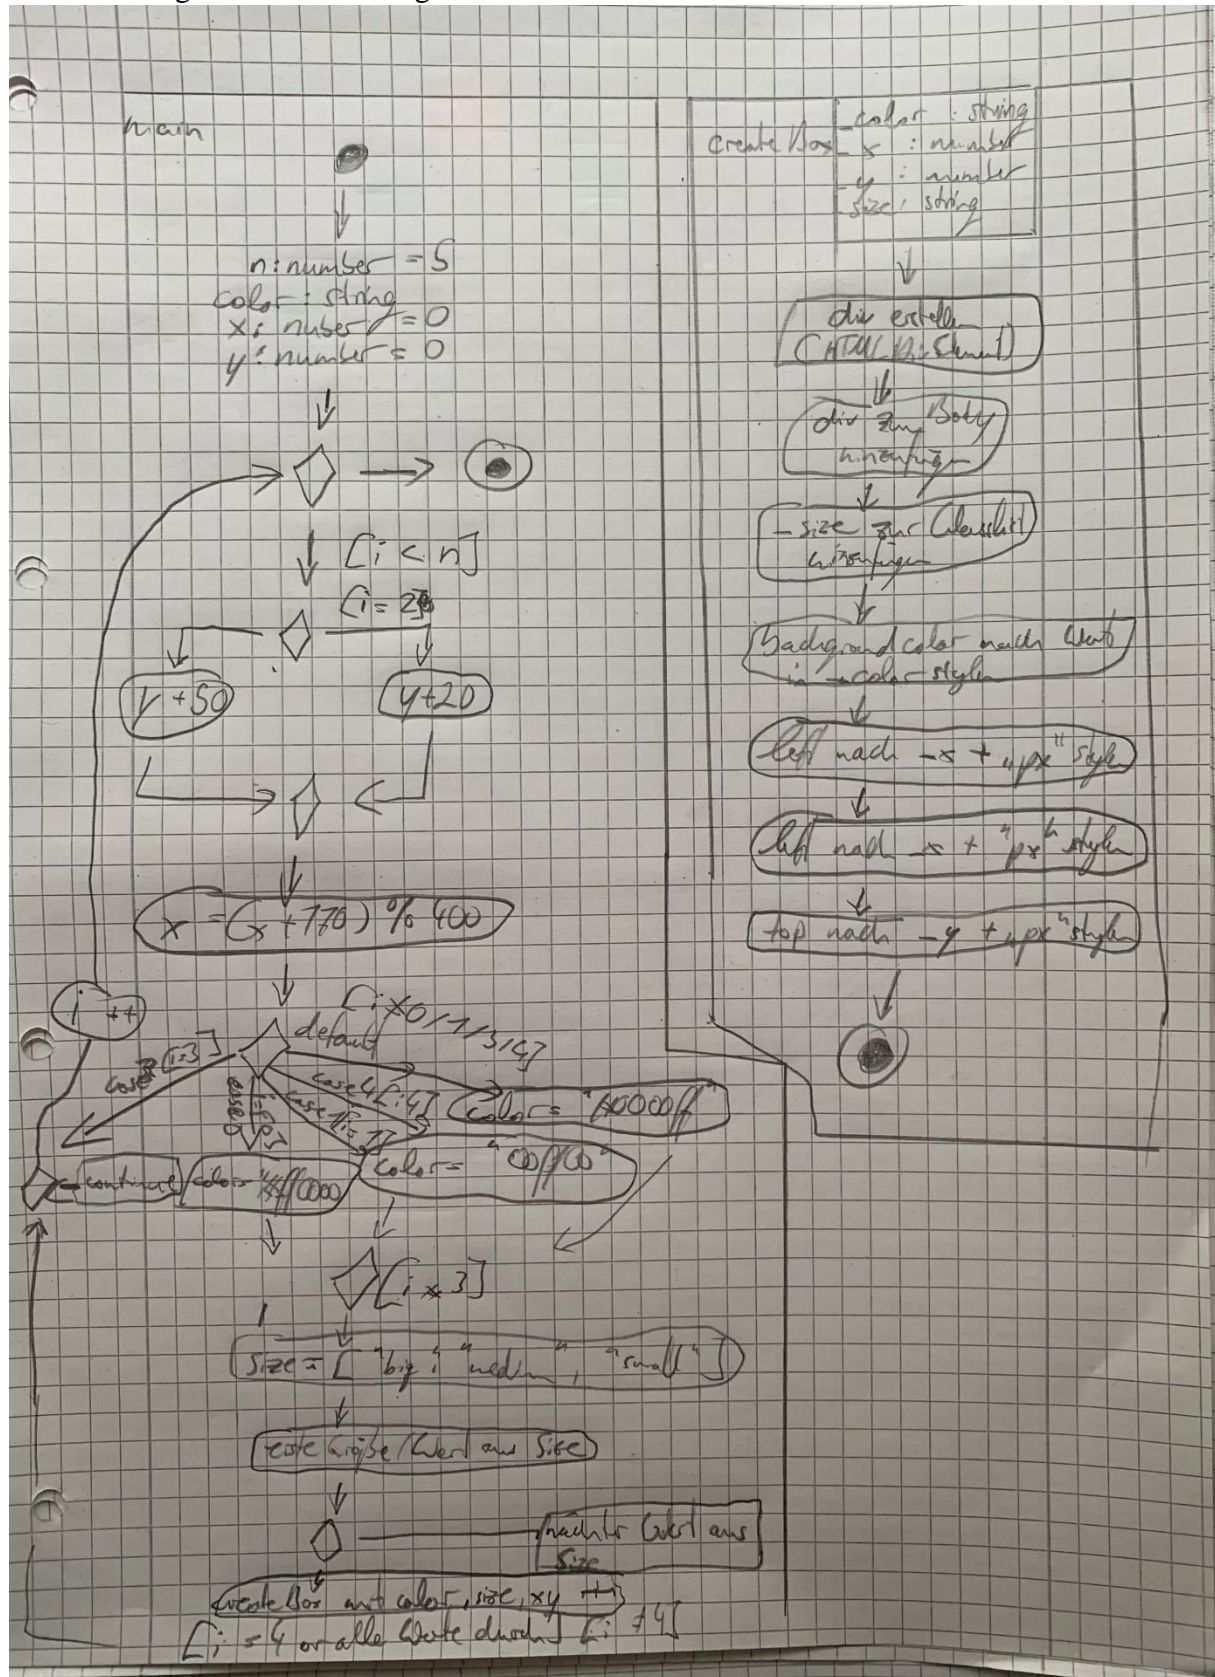 main
n: number = 5
color: string
x: nuber = 0
y: number = 0
[i < n]
[i = 2]
y + 50
y + 20
x = (x + 170) % 400
i ++
default
case 3 [i=3]
case 0 [i=0]
case 1 [i=1]
case 4 [i=4]
color = "#0000ff"
continue
color = "#ff0000
color = "00ff00"
size = [ "big", "medium", "small" ]
erste Größe/Wert aus Size
nächster Wert aus
Size
createBox mit color, size, xy
[i = 4 or alle Werte durch] [i ≠ 4]
createBox
_color : string
_x : number
_y : number
_size : string
div erstellen
(HTMLDivElement)
div zum Body
hinzufügen
_size zur Classlist
hinzufügen
Backgroundcolor nach Wert
in _color stylen
left nach _x + "px" stylen
left nach _x + "px" stylen
top nach _y + "px" stylen